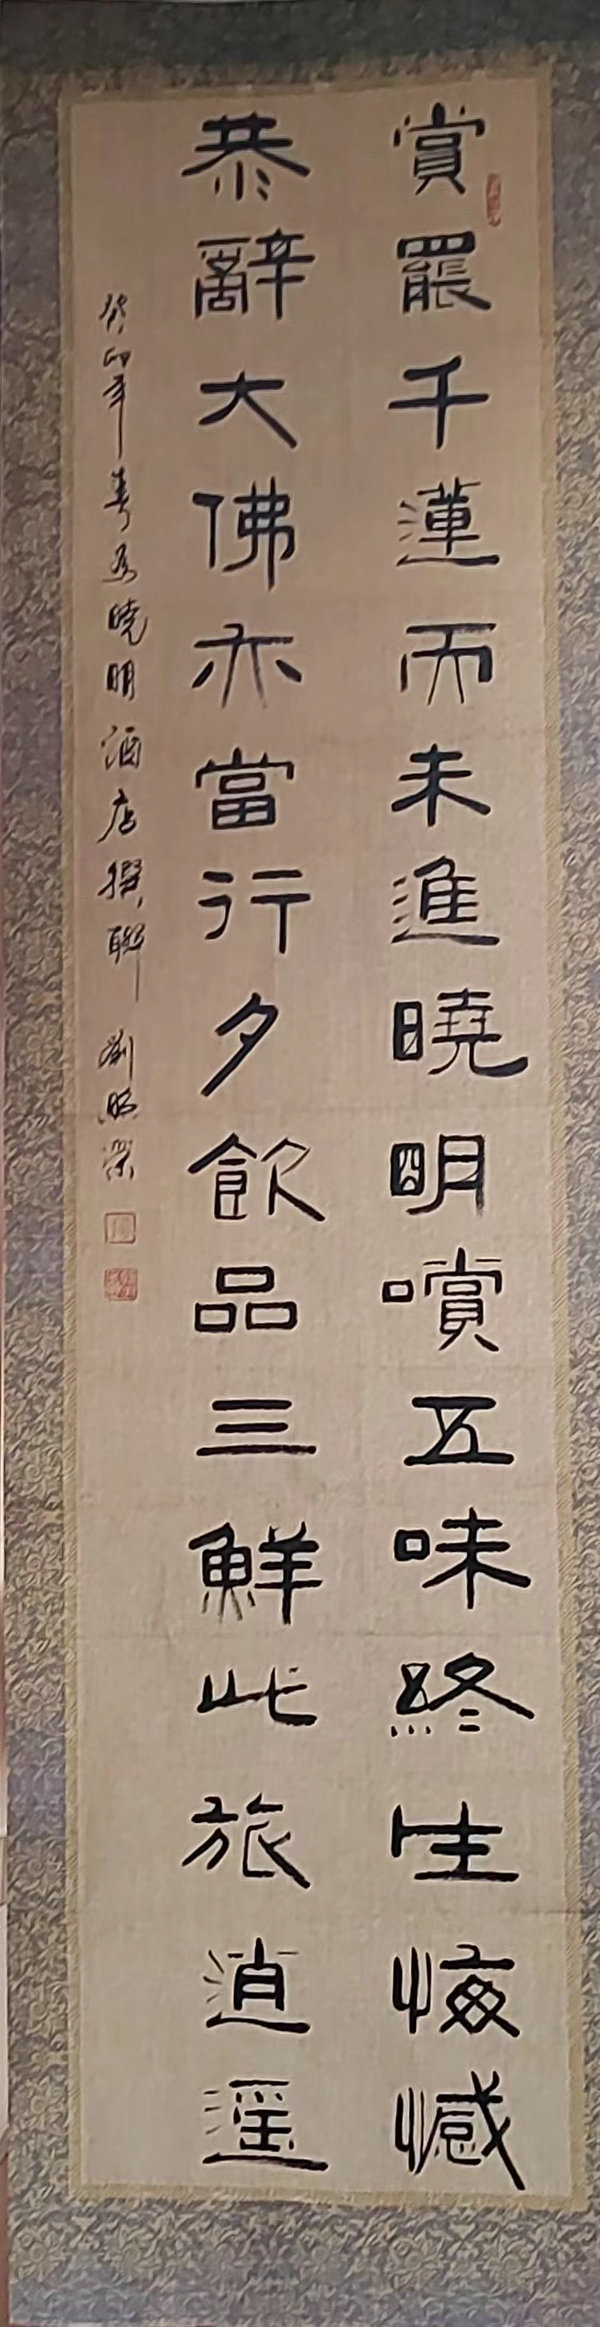 賞罷千蓮而未進曉明嚐五味終生悔憾
恭辭大佛亦當行夕飲品三鮮此旅逍遥
癸卯年春為曉明酒店撰聯 劉